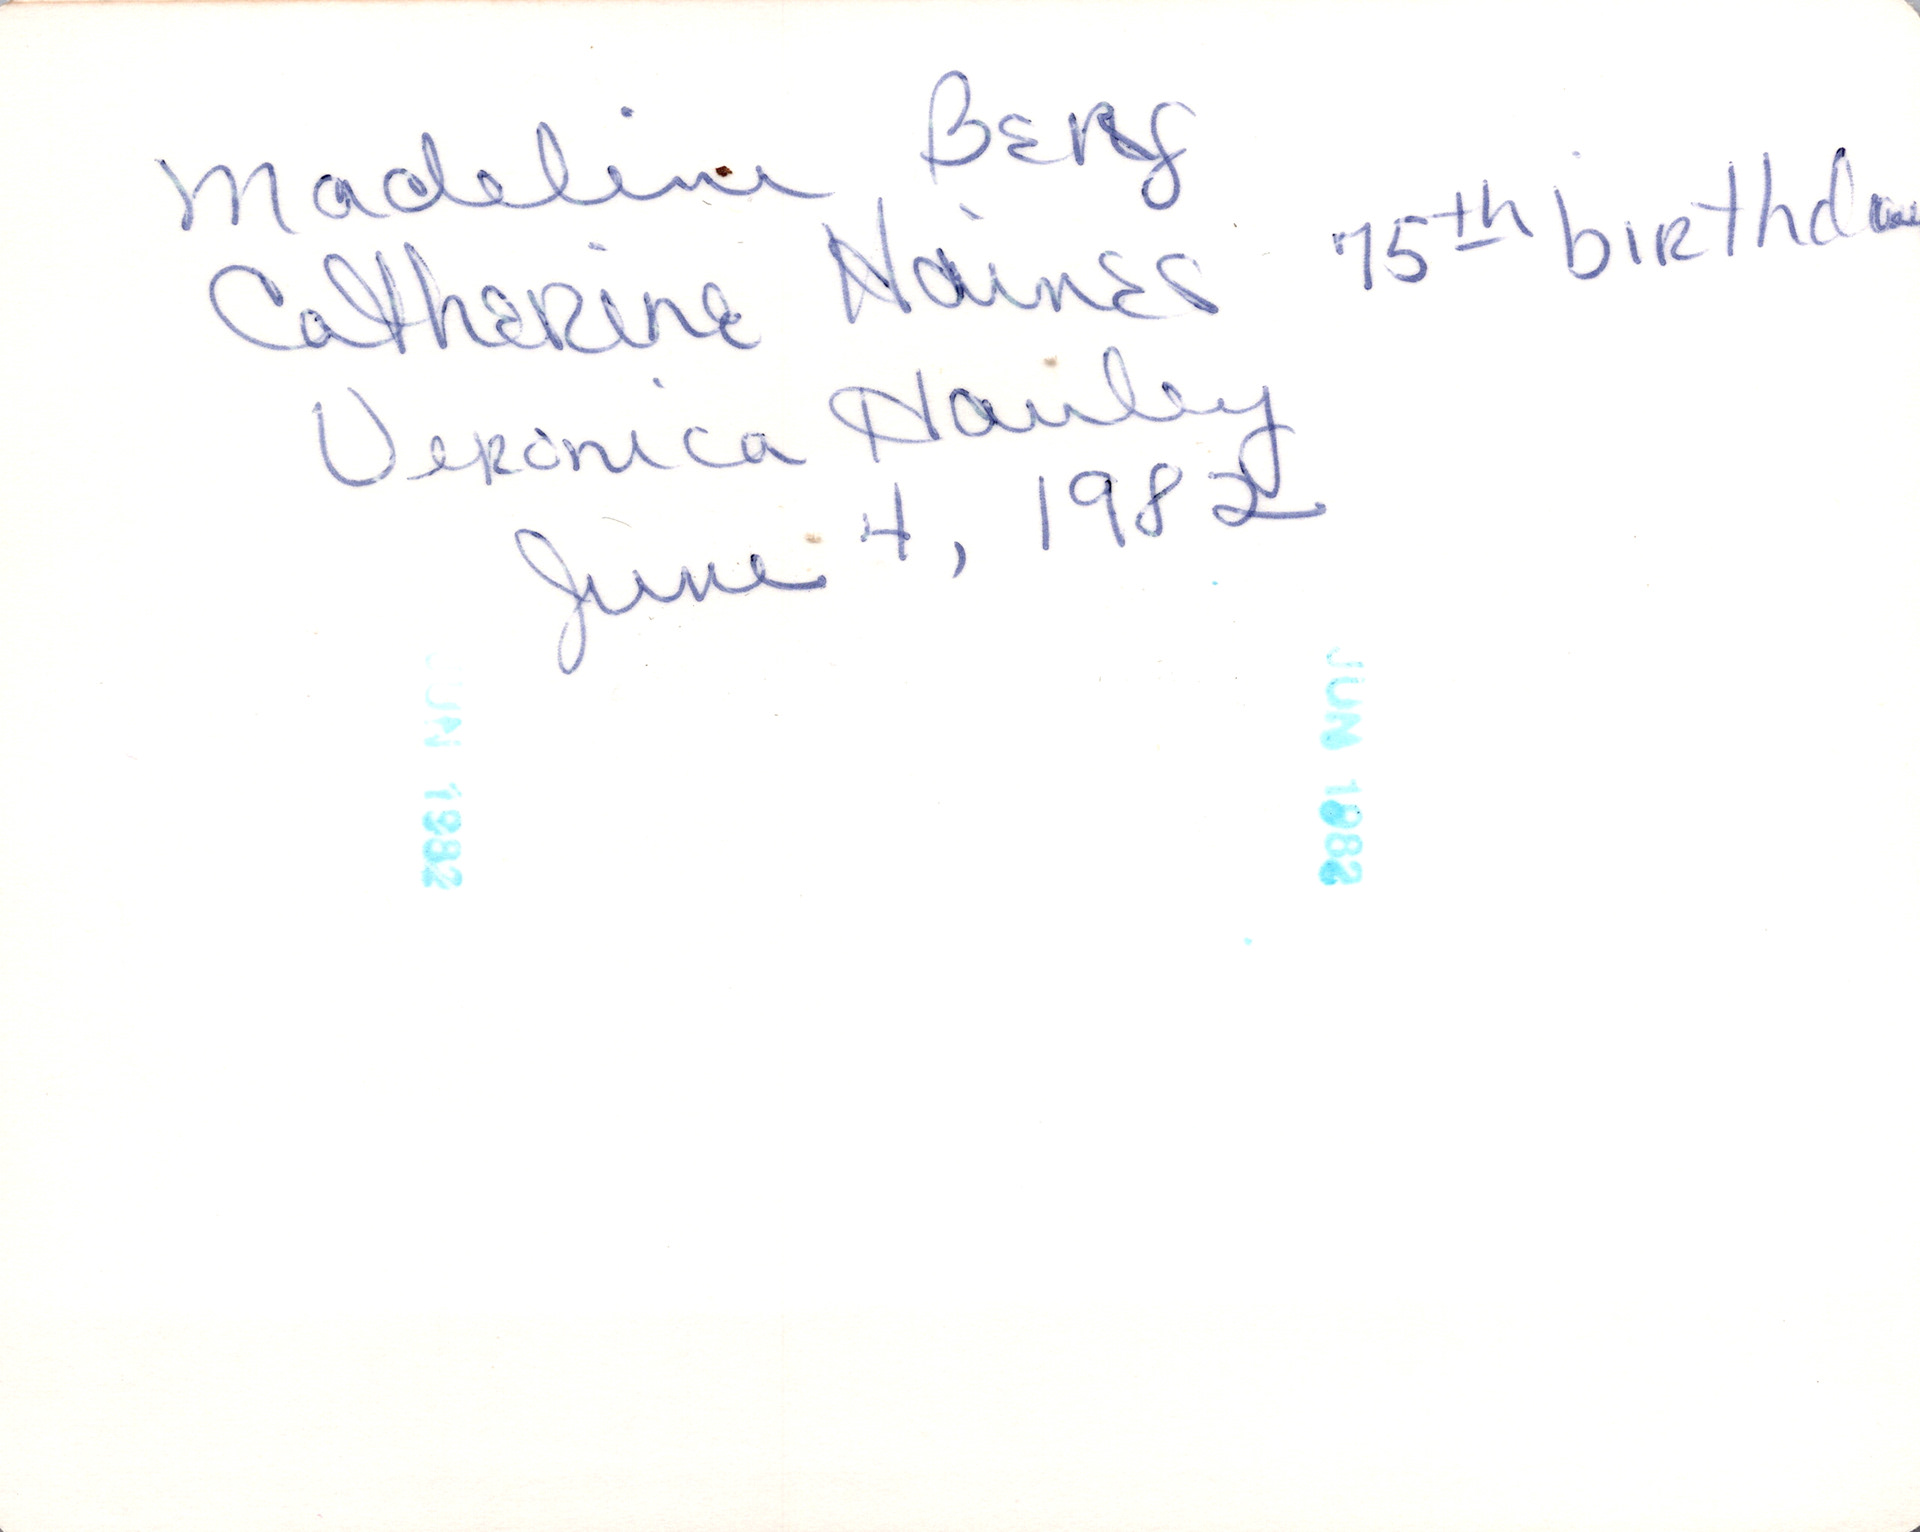 Madeline Berg
Catherine Haines 75th birthday
Veronica Hanley
June 4, 1982
JUN 1982
JUN 1982